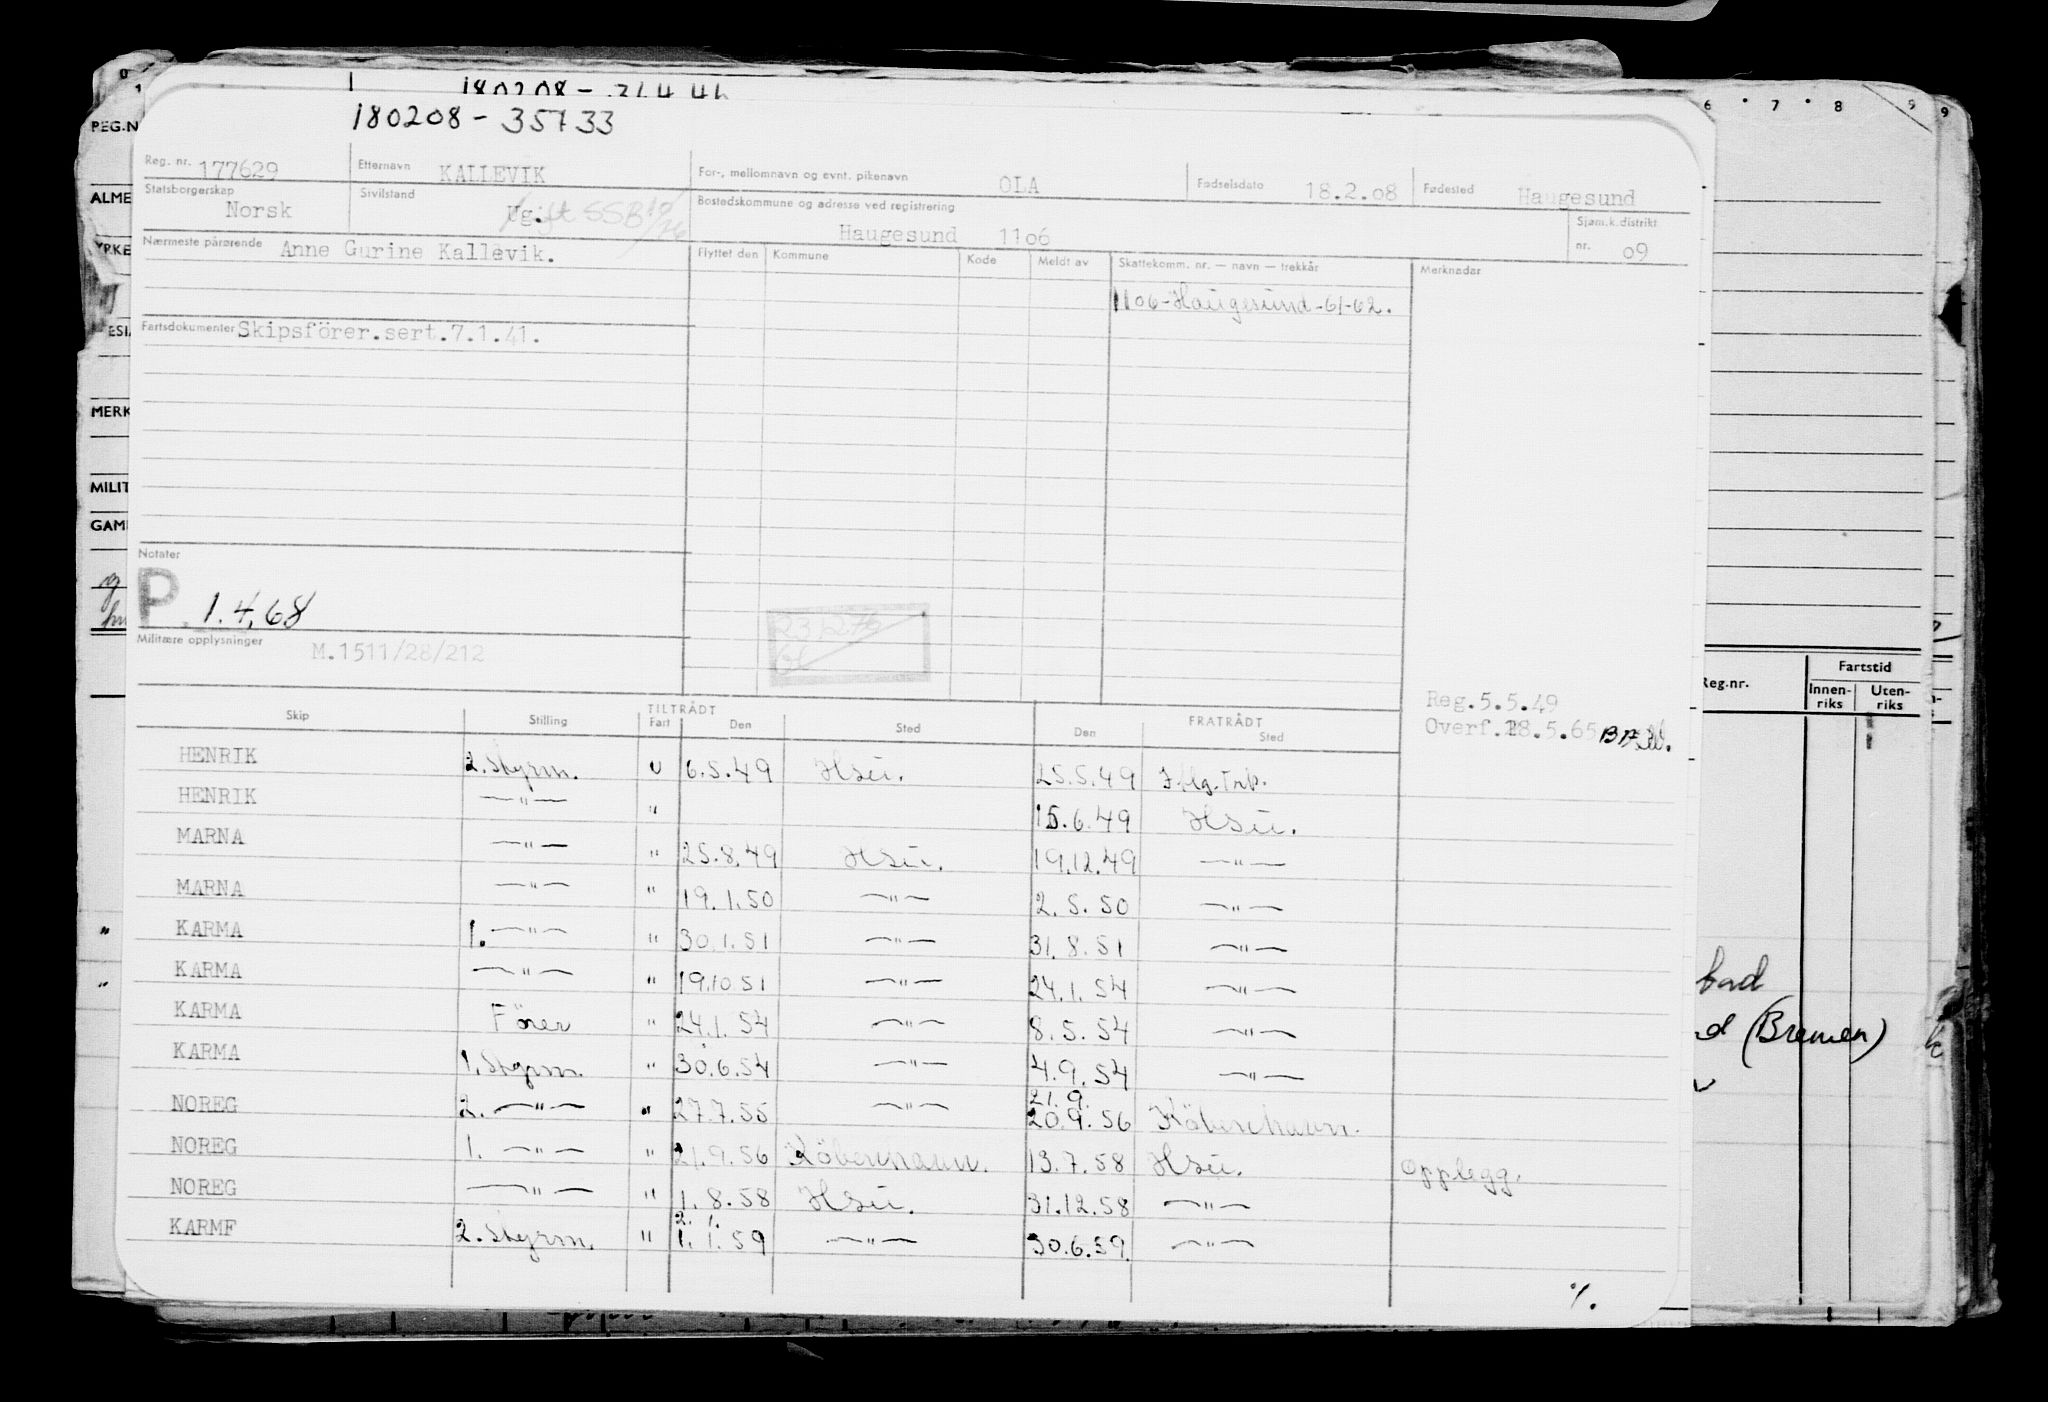 180208 - 35733
Reg. nr. 177629 Etternavn KALLEVIK For-, mellomnavn og evnt. pikenavn OLA Fødselsdato 18.2.08 Fødested Haugesund
Statsborgerskap Norsk Sivilstand Ug. gift SSB Bostedskommune og adresse ved registrering Haugesund 1106 Sjøm.k.distrikt nr. 09
Nærmeste pårørende Anne Gurine Kallevik. Flyttet den Kommune Kode Meldt av Skattekomm. nr. — navn — trekkår Merknader
1106-Haugesund-61-62.
Fartsdokumenter Skipsförer.sert.7.1.41.
Notater
P. 1.4.68
Militære opplysninger M.1511/28/212
Reg.5.5.49
Overf. 28.5.65
Skip Stilling TILTRÅDT Fart Den Sted FRATRÅDT Den Sted
HENRIK 2. Styrm. U 6.5.49 Hsu. 25.5.49
HENRIK —"— " 15.6.49 Hsu.
MARNA —"— " 25.8.49 Hsu. 19.12.49 —"—
MARNA —"— " 19.1.50 —"— 2.5.50 —"—
KARMA 1. —"— " 30.1.51 —"— 31.8.51 —"—
KARMA —"— " 19.10.51 —"— 24.1.54 —"—
KARMA Förer " 24.1.54 —"— 8.5.54 —"—
KARMA 1. Styrm. " 30.6.54 —"— 4.9.54 —"—
21.9.
NOREG 2. —"— " 27.7.55 —"— 20.9.56 Köbenhavn.
NOREG 1. —"— " 21.9.56 Köbenhavn. 13.7.58 Hsu. Opplegg.
NOREG —"— " 1.8.58 Hsu. 31.12.58 —"—
2. 1.
KARMF 2. Styrm. " 1.1.59 —"— 30.6.59. —"—
%.
6 7 8 9
REG.N
ALME
YRKE
MERK
MILIT
GAM
Reg.nr. Fartstid
Innen-riks Uten-riks
(Bremen)